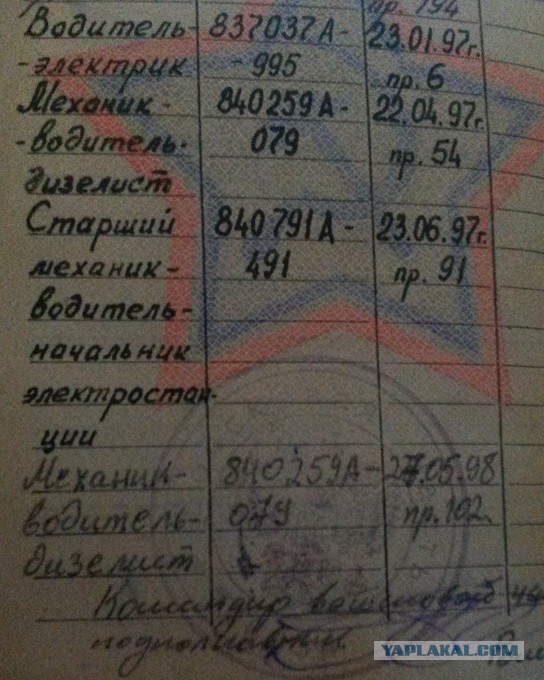 пр. 194
Водитель- 837037А- 23.01.97г.
-электрик -995 пр. 6
Механик- 840259А- 22.04.97г.
-водитель- 079 пр. 54
дизелист
Старший 840791А- 23.06.97г.
механик- 491 пр. 91
водитель-
начальник
электростан-
ции
Механик- 840259А- 27.05.98
водитель- 079 пр. 102
дизелист
Командир
подполковник
YAPLAKAL.COM